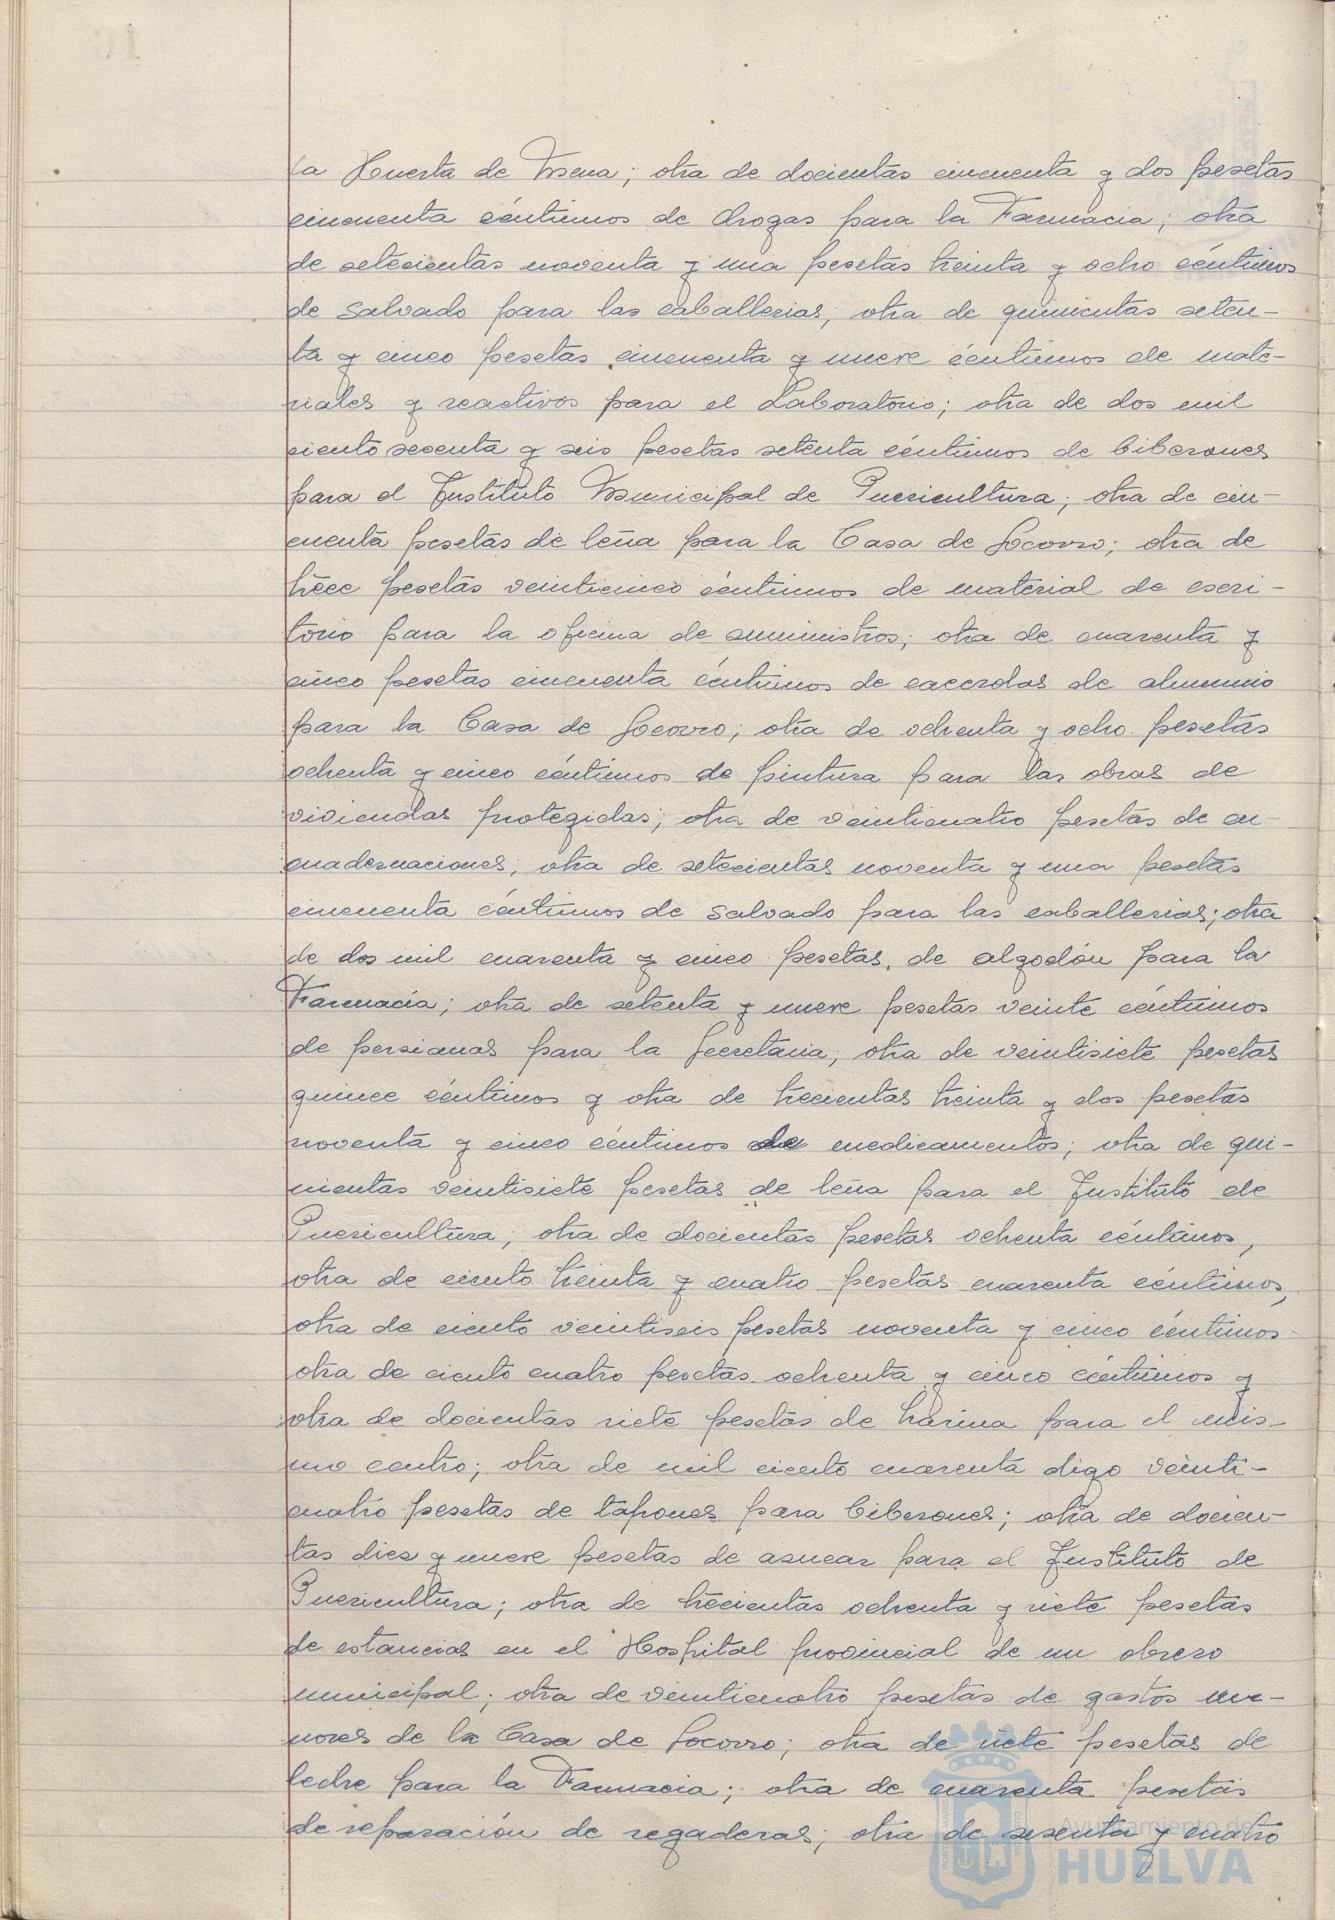 la Huerta de Mena; otra de docientas cincuenta y dos pesetas
cincuenta céntimos de drogas para la Farmacia; otra
de setecientas noventa y una pesetas treinta y ocho céntimos
de salvado para las caballerias; otra de quinientas seten-
ta y cinco pesetas cincuenta y nueve céntimos de mate-
riales y reactivos para el Laboratorio; otra de dos mil
ciento sesenta y seis pesetas setenta céntimos de biberones
para el Instituto Municipal de Puericultura; otra de cin-
cuenta pesetas de leña para la Casa de Socorro; otra de
trece pesetas veinticinco céntimos de material de escri-
torio para la oficina de suministros; otra de cuarenta y
cinco pesetas cincuenta céntimos de cacerolas de aluminio
para la Casa de Socorro; otra de ochenta y ocho pesetas
ochenta y cinco céntimos de pintura para las obras de
viviendas protegidas; otra de veinticuatro pesetas de en-
cuadernaciones; otra de setecientas noventa y una pesetas
cincuenta céntimos de salvado para las caballerias; otra
de dos mil cuarenta y cinco pesetas, de algodón para la
Farmacia; otra de setenta y nueve pesetas veinte céntimos
de persianas para la Secretaria; otra de veintisiete pesetas
quince céntimos y otra de trecientas treinta y dos pesetas
noventa y cinco céntimos de medicamentos; otra de qui-
nientas veintisiete pesetas de leña para el Instituto de
Puericultura; otra de docientas pesetas ochenta céntimos,
otra de ciento treinta y cuatro pesetas cuarenta céntimos,
otra de ciento veintiseis pesetas noventa y cinco céntimos
otra de ciento cuatro pesetas ochenta y cinco céntimos y
otra de docientas siete pesetas de harina para el mis-
mo centro; otra de mil ciento cuarenta digo veinti-
cuatro pesetas de tapones para biberones; otra de docien-
tas diez y nueve pesetas de azucar para el Instituto de
Puericultura; otra de trecientas ochenta y siete pesetas
de estancias en el Hospital provincial de un obrero
municipal; otra de veinticuatro pesetas de gastos me-
nores de la Casa de Socorro; otra de siete pesetas de
leche para la Farmacia; otra de cuarenta pesetas
de reparación de regaderas; otra de sesenta y cuatro
Ayuntamiento de
HUELVA